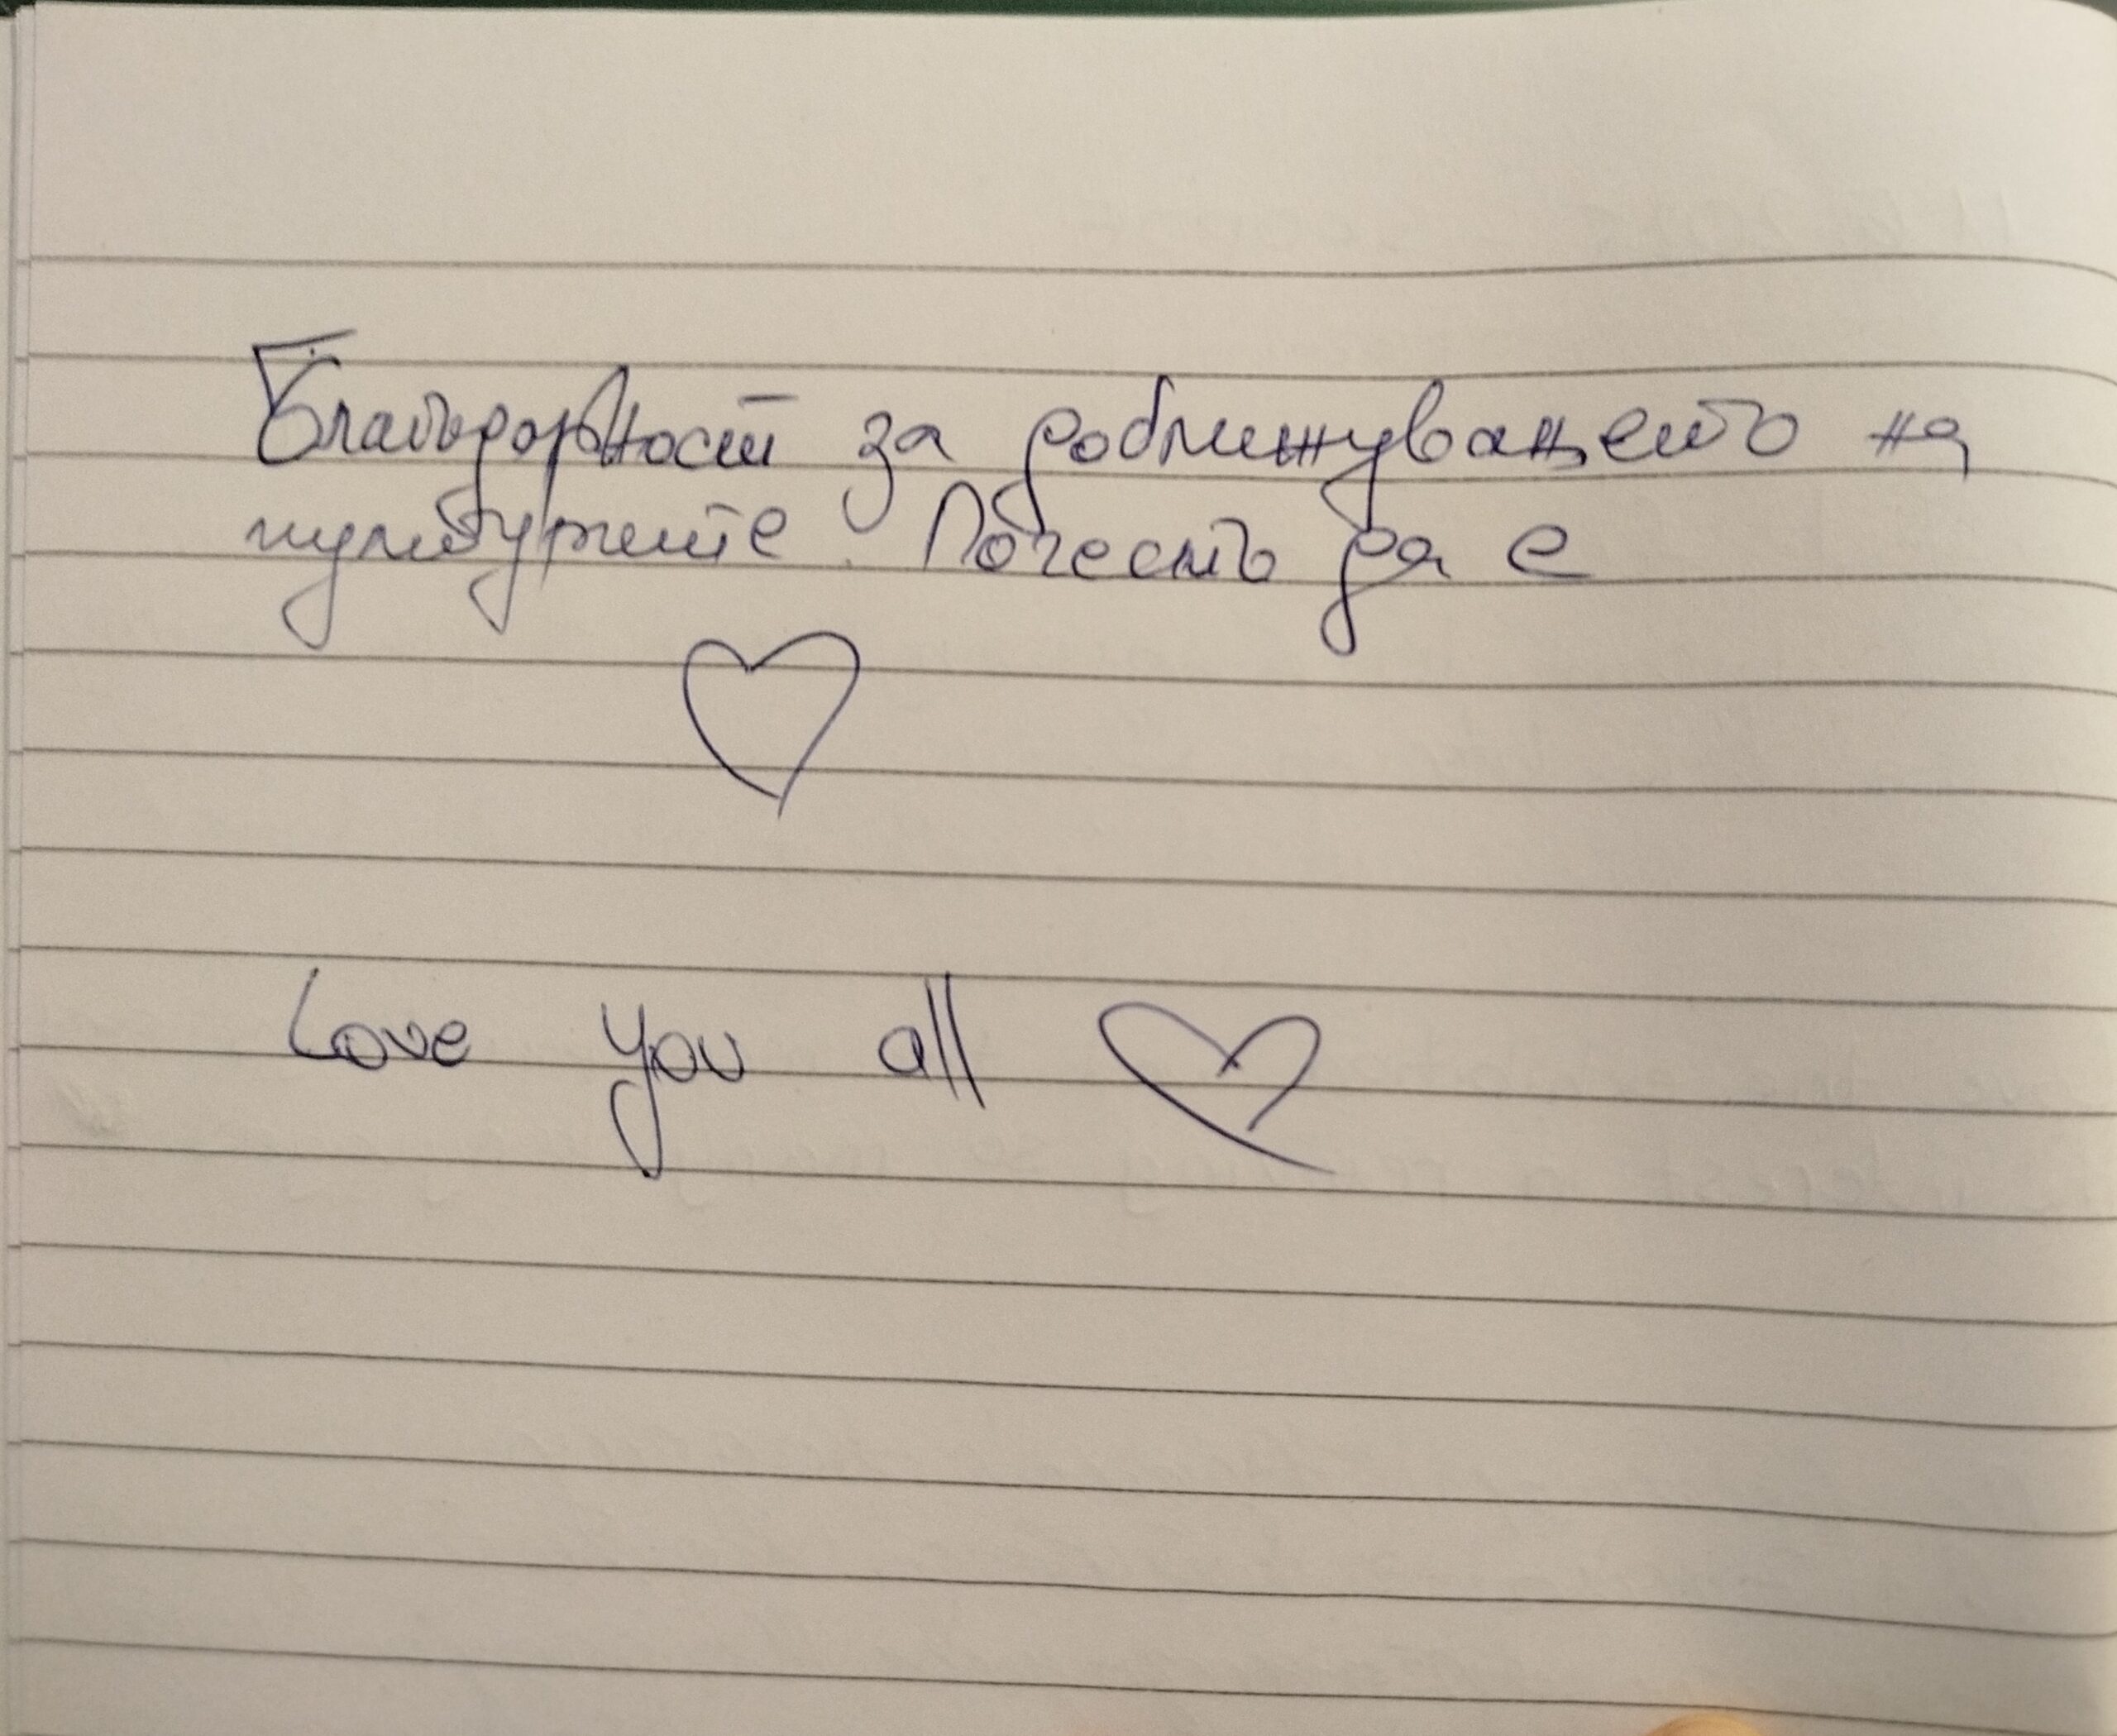 Благодарност за доближуващето на
културите. Почесто да е
Love you all